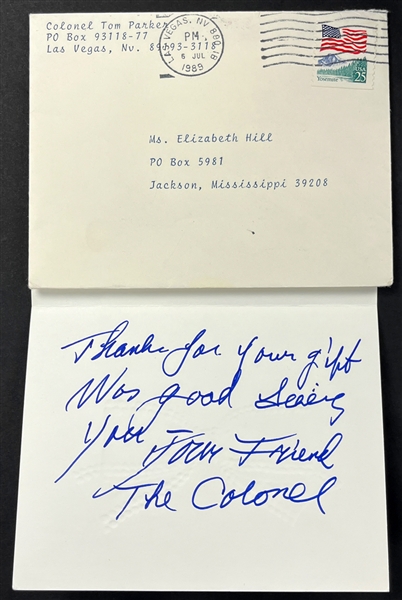 Colonel Tom Parker
PO Box 93118-77
Las Vegas, Nv. 89193-3118
LAS VEGAS, NV 890 1B
PM
6 JUL
1989
USA
25
Yosemite
Ms. Elizabeth Hill
PO Box 5981
Jackson, Mississippi 39208
Thanks for your gift
Was good seeing
you Your Friend
The Colonel